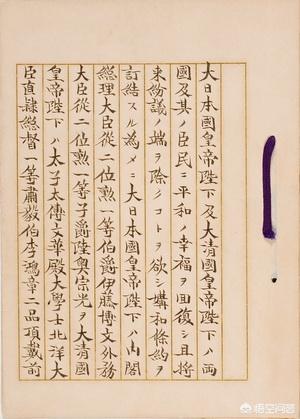 大日本國皇帝陛下及大清國皇帝陛下ハ兩
國及其ノ臣民ニ平和ノ幸福ヲ回復シ且將
來紛議ノ端ヲ除クコトヲ欲シ媾和條約ヲ
訂結スル為メニ大日本國皇帝陛下ハ內閣
總理大臣從二位勲一等伯爵伊藤博文外務
大臣從二位勲一等子爵陸奧宗光ヲ大清國
皇帝陛下ハ太子太傅文華殿大學士北洋大
臣直隷總督一等肅毅伯李鴻章二品頂戴前
悟空问答